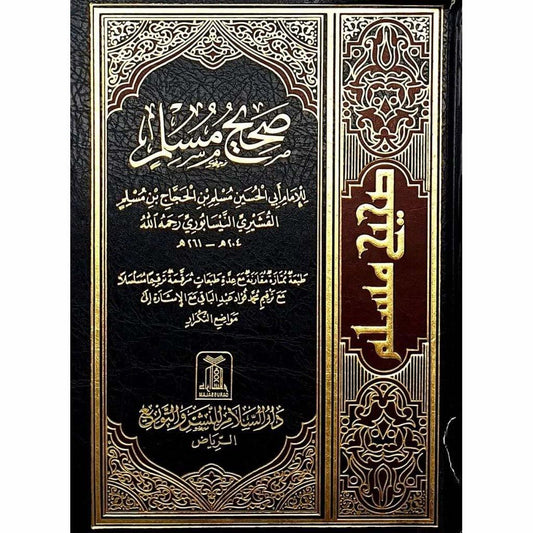 صحيح مسلم
للإمام أبي الحسين مسلم بن الحجاج بن مسلم
القشيري النيسابوري رحمه الله
٢٠٤هـ - ٢٦١هـ
طبعة ممتازة مقارنة مع عدة طبعات مرقمة ترقيما مسلسلا
مع ترقيم محمد فؤاد عبد الباقي مع الإشارة إلى
مواضع التكرار
دار السلام للنشر والتوزيع
الرياض
صحيح مسلم